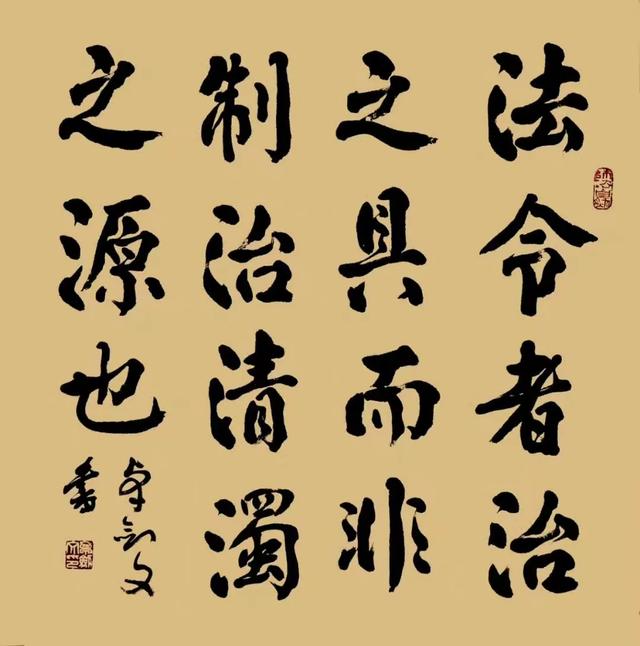 法令者治
之具而非
制治清濁
之源也
剑文
書